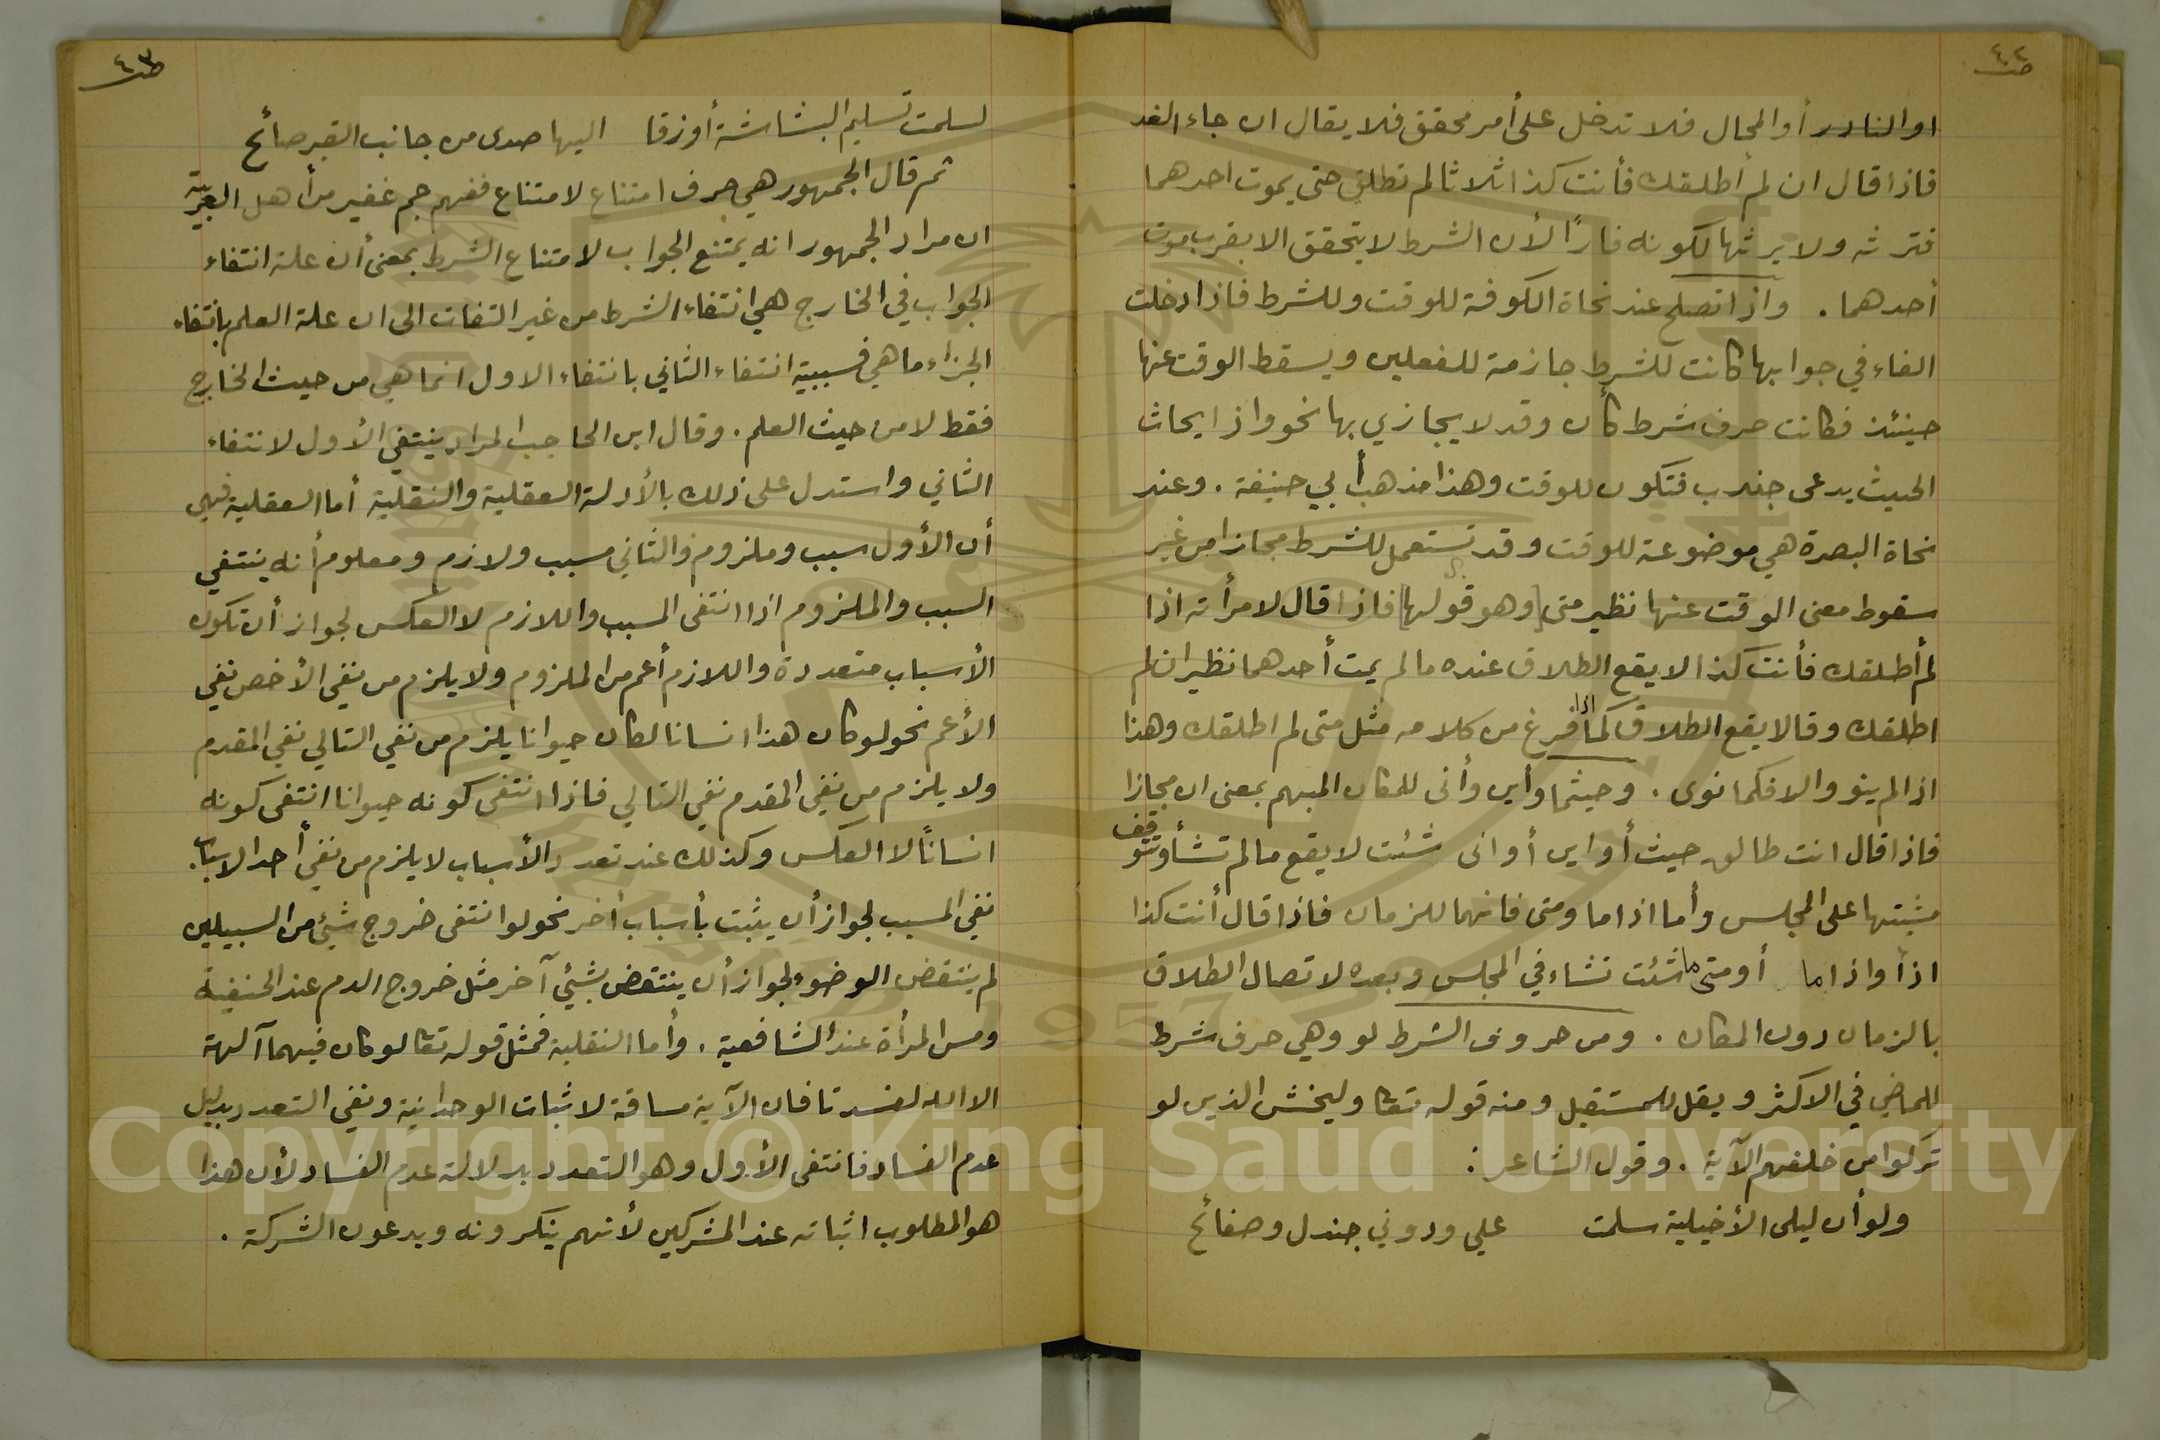 ص ٤٢
او النادر أو المحال فلا تدخل على أمر محقق فلا يقال ان جاء الغد
فاذا قال ان لم أطلقك فأنت كذا ثلاثا لم تطلق حتى يموت احدهما
فترثه ولا يرثها لكونه فارًا لأن الشرط لا يتحقق الا بقرب موت
أحدهما . واذا تصلح عند نحاة الكوفة للوقت وللشرط فاذا دخلت
الفاء في جوابها كانت للشرط جازمة للفعلين ويسقط الوقت عنها
حينئذ فكانت حرف شرط كأن وقد لا يجازي بها نحو واذا يحاث
الحيث يدعى جندب فتكون للوقت وهذا مذهب أبي حنيفة . وعند
نحاة البصرة هي موضوعة للوقت وقد تستعمل للشرط مجازا من غير
سقوط معنى الوقت عنها نظير متى [وهو قولها] فاذا قال لامرأته اذا
لم أطلقك فأنت كذا لا يقع الطلاق عنده ما لم يمت أحدهما نظير ان لم
اطلقك وقالا يقع الطلاق كما اذا فرغ من كلامه مثل متى لم اطلقك وهذا
اذا لم ينو والا فكما نوى . وحيثما وأين وأنى للمكان المبهم بمعنى ان مجازا
فاذا قال انت طالق حيث أو اين أو انى شئت لا يقع ما لم تشأ وتتوقف
مشيتها على المجلس وأما اذا ما ومتى فانهما للزمان فاذا قال أنت كذا
اذا واذا ما أو متى ما شئت تشاء في المجلس وبعده لاتصال الطلاق
بالزمان دون المكان . ومن حروف الشرط لو وهي حرف شرط
للماضي في الاكثر ويقل للمستقبل ومنه قوله تعا وليخش الذين لو
تركوا من خلفهم الآية . وقول الشاعر :
ولو أن ليلى الأخيلية سلمت علي ودوني جندل وصفائح
ص ٤٣
لسلمت تسليم البشاشة أو زقا اليها صدى من جانب القبر صائح
ثم قال الجمهور هي حرف امتناع لامتناع ففهم جم غفير من أهل العربية
ان مراد الجمهور انه يمتنع الجواب لامتناع الشرط بمعنى أن علة انتفاء
الجواب في الخارج هي انتفاء الشرط من غير التفات الى ان علة العلم بانتفاء
الجزاء ما هي فسببية انتفاء الثاني بانتفاء الاول انما هي من حيث الخارج
فقط لا من حيث العلم . وقال ابن الحاجب المراد ينتفي الأول لانتفاء
الثاني واستدل على ذلك بالأدلة العقلية والنقلية أما العقلية فهي
أن الأول سبب وملزوم والثاني مسبب ولازم ومعلوم أنه ينتفي
السبب والملزوم اذا انتفى المسبب واللازم لا العكس لجواز أن تكون
الأسباب متعددة واللازم أعم من الملزوم ولا يلزم من نفي الأخص نفي
الأعم نحو لو كان هذا انسانا لكان حيوانا يلزم من نفي التالي نفي المقدم
ولا يلزم من نفي المقدم نفي التالي فاذا انتفى كونه حيوانا انتفى كونه
انسانًا لا العكس وكذلك عند تعدد الأسباب لا يلزم من نفي أحد الاسباب
نفي المسبب لجواز أن يثبت بأسباب أخر نحو لو انتفى خروج شيئ من السبيلين
لم ينتقض الوضوء لجواز أن ينتقض بشيئ آخر مثل خروج الدم عند الحنفية
ومس المرأة عند الشافعية . وأما النقلية فمثل قوله تعا لو كان فيهما آلهة
الا الله لفسدتا فان الآية مساقة لاثبات الوحدانية ونفي التعدد بدليل
عدم الفساد فانتفى الأول وهو التعدد بدلالة عدم الفساد لأن هذا
هو المطلوب اثباته عند المشركين لأنهم ينكرونه ويدعون الشركة .
Copyright © King Saud University
1957